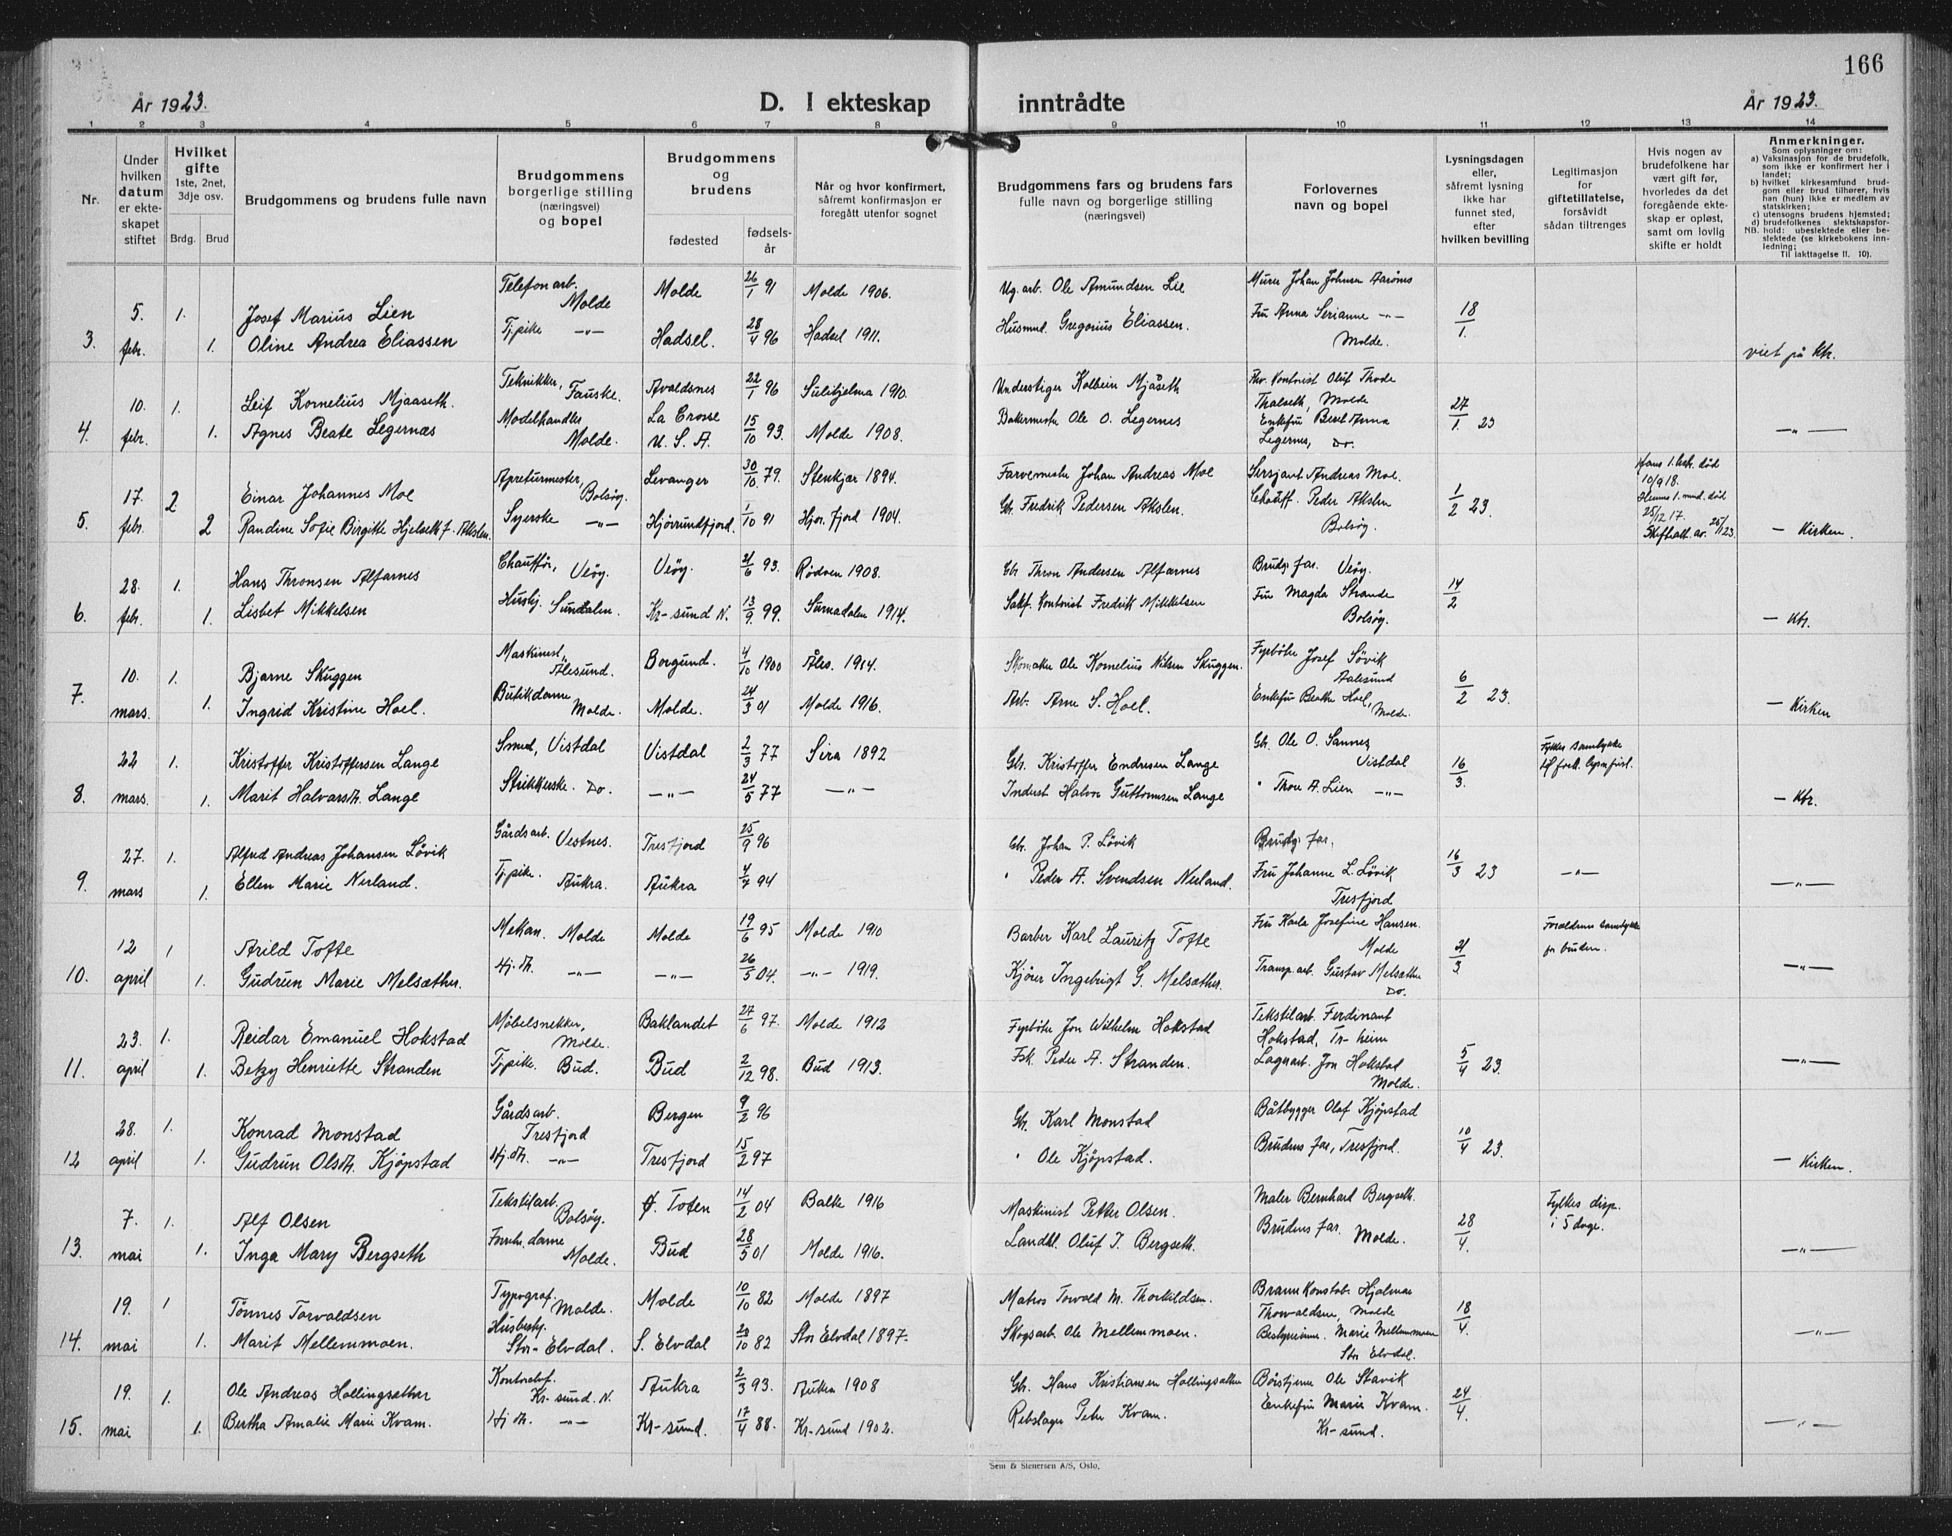 166
År 1923.
D. I ekteskap inntrådte
År 1923.
1 2 3 4 5 6 7 8 9 10 11 12 13 14
Nr.
Under hvilken datum er ekteskapet stiftet
Hvilket gifte 1ste, 2net, 3dje osv.
Brdg. Brud
Brudgommens og brudens fulle navn
Brudgommens borgerlige stilling (næringsvei) og bopel
Brudgommens og brudens
fødested
fødselsår
Når og hvor konfirmert, såfremt konfirmasjon er foregått utenfor sognet
Brudgommens fars og brudens fars fulle navn og borgerlige stilling (næringsvei)
Forlovernes navn og bopel
Lysningsdagen eller, såfremt lysning ikke har funnet sted, efter hvilken bevilling
Legitimasjon for giftetillatelse, forsåvidt sådan tiltrenges
Hvis nogen av brudefolkene har vært gift før, hvorledes da det foregående ekteskap er opløst, samt om lovlig skifte er holdt
Anmerkninger.
Som oplysninger om:
a) Vaksinasjon for de brudefolk, som ikke er konfirmert her i landet;
b) hvilket kirkesamfund brudgom eller brud tilhører, hvis han (hun) ikke er medlem av statskirken;
c) utensogns brudens hjemsted;
d) brudefolkenes slektskapsforhold: ubeslektede eller beslektede (se kirkebokens innledning;
NB. Til iakttagelse II. 10).
3. 5. febr. 1. Josef Marius Lien Telefonarb. Molde Molde 26/1 91 Molde 1906. Ole Amundsen Lie Murer Johan Johnsen 18/1.
1. Oline Andrea Eliassen Tj.pike -"- Hadsel. 28/4 96 Hadsel 1911. Husmd. Gregorius Eliassen. Fru Anna Serianne -"- Molde. viet på Ktr.
4. 10. febr. 1. Leif Kornelius Mjaaseth. Tekniker, Fauske. Avaldsnes 22/1 96 Sulitjelma 1910. Understiger Kolbein Mjåseth Kontorist Oluf Thode Thalseth, Molde 27/1 23
1. Agnes Beate Legernæs Modehandler Molde. La Crosse U. S. A. 15/10 93. Molde 1908. Bakermester Ole O. Legernes Enkefru Anna Legernes, Do. -"-
5. 17. febr. 2 Einar Johannes Moe Apreturmester, Bolsøy. Levanger 30/10 79. Stenkjær 1894. Farvemester Johan Andreas Moe Sersjant Andreas Moe. 1/2 23. Hans 1. hst. død 10/9 18.
2 Randine Sofie Birgitte Hjelseth f. Akslen. Syerske -"- Hjørundfjord. 1/10 91 Hjør. fjord 1904. Gb. Fredrik Pedersen Akslen. Chauff. Peder Akslen Bolsøy. Hennes 1. mand død 25/12 17. Skifteatt. av 25/1 23. - Kirken.
6. 28. febr. 1. Hans Thronsen Alfarnes Chauffør, Veøy. Veøy. 21/6 93. Rødven 1908. Gbr Thron Andersen Alfarnes Brudg. far. Veøy. 14/2
1. Lisbet Mikkelsen Hushj. Sundalen. Kr-sund N. 13/9 99. Surnadalen 1914. Kontorist Fredrik Mikkelsen Fru Magda Strande Bolsøy. - Ktr.
7. 10. mars. 1. Bjarne Skuggen Maskinist, Ålesund. Borgund. 4/10 1900 Åles. 1914. Skomaker Ole Kornelius Nilsen Skuggen. Fyrbøter Josef Søvik Aalesund 6/2 23.
1. Ingrid Kristine Hoel. Butikdame Molde. Molde. 24/3 01 Molde 1916. Arb. Arne S. Hoel. Enkefru Beathe Hoel, Molde. - Kirken
8. 22 mars. 1. Kristoffer Kristoffersen Lange Smed, Vistdal Vistdal 2/3 77 Sira 1892 Gbr. Kristoffer Endresen Lange Gb. Ole O. Sannes Vistdal 16/3. Fylkes samtykke
1. Marit Halvarsdtr. Lange Strikkerske. Do. -"- 24/5 77 -"- Inderst Halvor Guttormsen Lange " Thore A. Lien -"- - Ktr.
9. 27. mars 1. Alfred Andreas Johansen Løvik Gårdsarb. Vestnes. Tresfjord 25/9 96 Gbr. Johan P. Løvik Brudg. far. 16/3 23 -"-
1. Ellen Marie Nerland. Tj.pike. Aukra. Aukra 4/7 94 " Peder A. Svendsen Nerland. Fru Johanne L. Løvik Tresfjord -"-
10. 12 april 1 Arild Tofte Mekan. Molde Molde 19/6 95 Molde 1910 Barber Karl Lauritz Tofte Fru Karla Josefine Hansen. Molde 21/3. Forældrenes samtykke for bruden.
1. Gudrun Marie Melsæther. Hj.dtr. -"- -"- 26/5 04. -"- 1919. Kjører Ingebrigt G. Melsæther. Transp. arb. Gustav Melsæther Do. -"-
11. 23. april 1. Reidar Emanuel Hokstad Møbelsnekker, Molde. Baklandet 27/6 97. Molde 1912 Fyrbøter Jon Wilhelm Hokstad Tekstilarb. Ferdinant Hokstad, Tr-heim 5/4 23.
1. Betzy Henriette Stranden Tj.pike. Bud. Bud 2/12 98. Bud 1913. Fsk. Peder A. Stranden. Lagerarb. Jon Hokstad Molde. -"-
12 28. april 1. Konrad Monstad Gårdsarb. Tresfjord Bergen 9/2 96 Gbr. Karl Monstad Båtbygger Olaf Kjøpstad 10/4 23.
1. Gudrun Olsdtr. Kjøpstad Hj.dtr. -"- Tresfjord 15/2 97 " Ole Kjøpstad. Brudens far, Tresfjord. - Kirken.
13. 7. mai 1. Alf Olsen Tekstilarb. Bolsøy. Ø. Toten 14/2 04 Balke 1916 Maskinist Petter Olsen. Maler Bernhard Bergseth. 28/4. Fylkes disp. i 5 dage.
1. Inga Mary Bergseth Forretn. dame Molde. Bud 28/5 01 Molde 1916. Landhl. Oluf J. Bergseth. Brudens far. Molde. -"-
14. 19. mai 1 Tønnes Torvaldsen Typograf. Molde. Molde 10/10 82 Molde 1897 Matros Torvald M. Thorkildsen. Brannkonstab. Hjalmar Thorvaldsen, Molde 18/4.
1. Marit Mellemmoen. Husbesty. Stor-Elvdal. S. Elvdal 20/10 82 Stor Elvdal 1897. Skogsarb. Ole Mellemmoen. Bestyrerinne. Marie Mellemmoen Stor Elvdal. -"-
15. 19. mai 1. Ole Andreas Hollingsæther Kontorbef. Kr-sund. N. Aukra 2/3 93. Aukra 1908 Gbr. Hans Kristiansen Hollingsæther Børstjener Ole Stavik 24/4.
1. Bertha Amalie Marie Kvam. Hj. dtr. -"- Kr-sund. 17/4 88. Kr-sund 1902. Rebslager Peter Kvam. Enkefru Marie Kvam. Kr-sund. -"-
Sem & Stenersen A/S, Oslo.